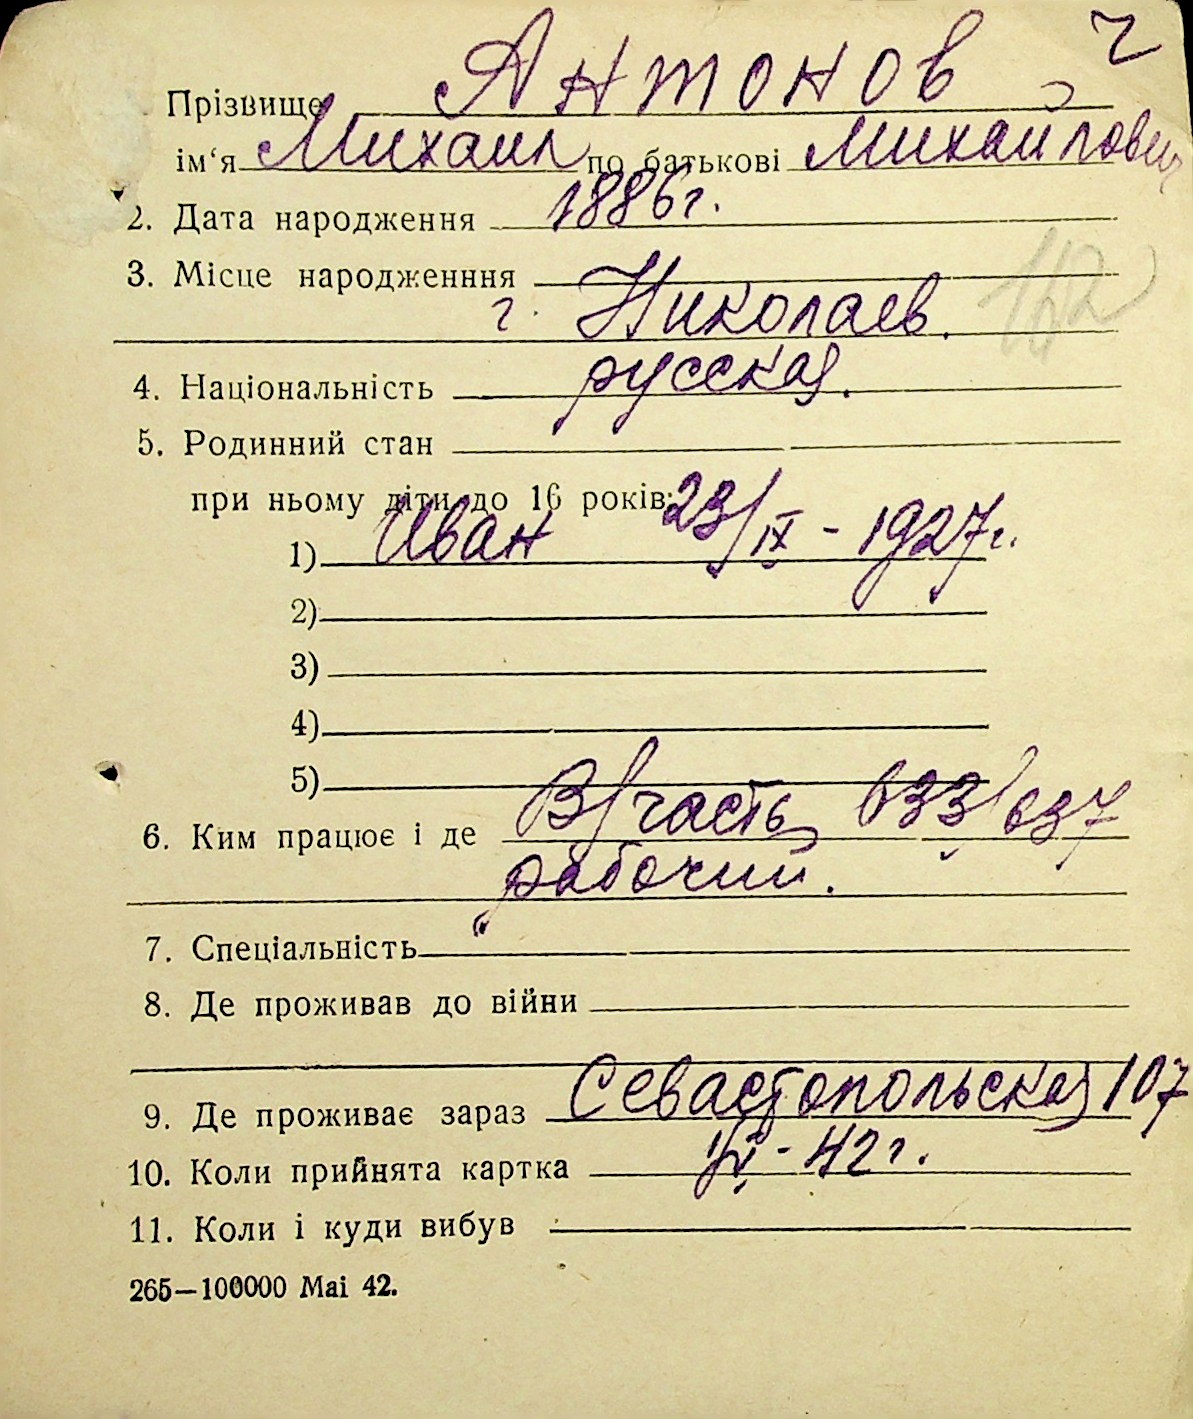 Прізвище Антонов
ім‘я Михаил по батькові Михайлович
2. Дата народження 1886г.
3. Місце народженння
г. Николаев.
4. Національність русская.
5. Родинний стан
при ньому діти до 16 років:
1) Иван 23/IX - 1927г.
2)
3)
4)
5)
6. Ким працює і де В/часть 633/637
рабочий.
7. Спеціальність
8. Де проживав до війни
9. Де проживає зараз Севастопольская 107
10. Коли прийнята картка - 42г.
11. Коли і куди вибув
265—100000 Mai 42.